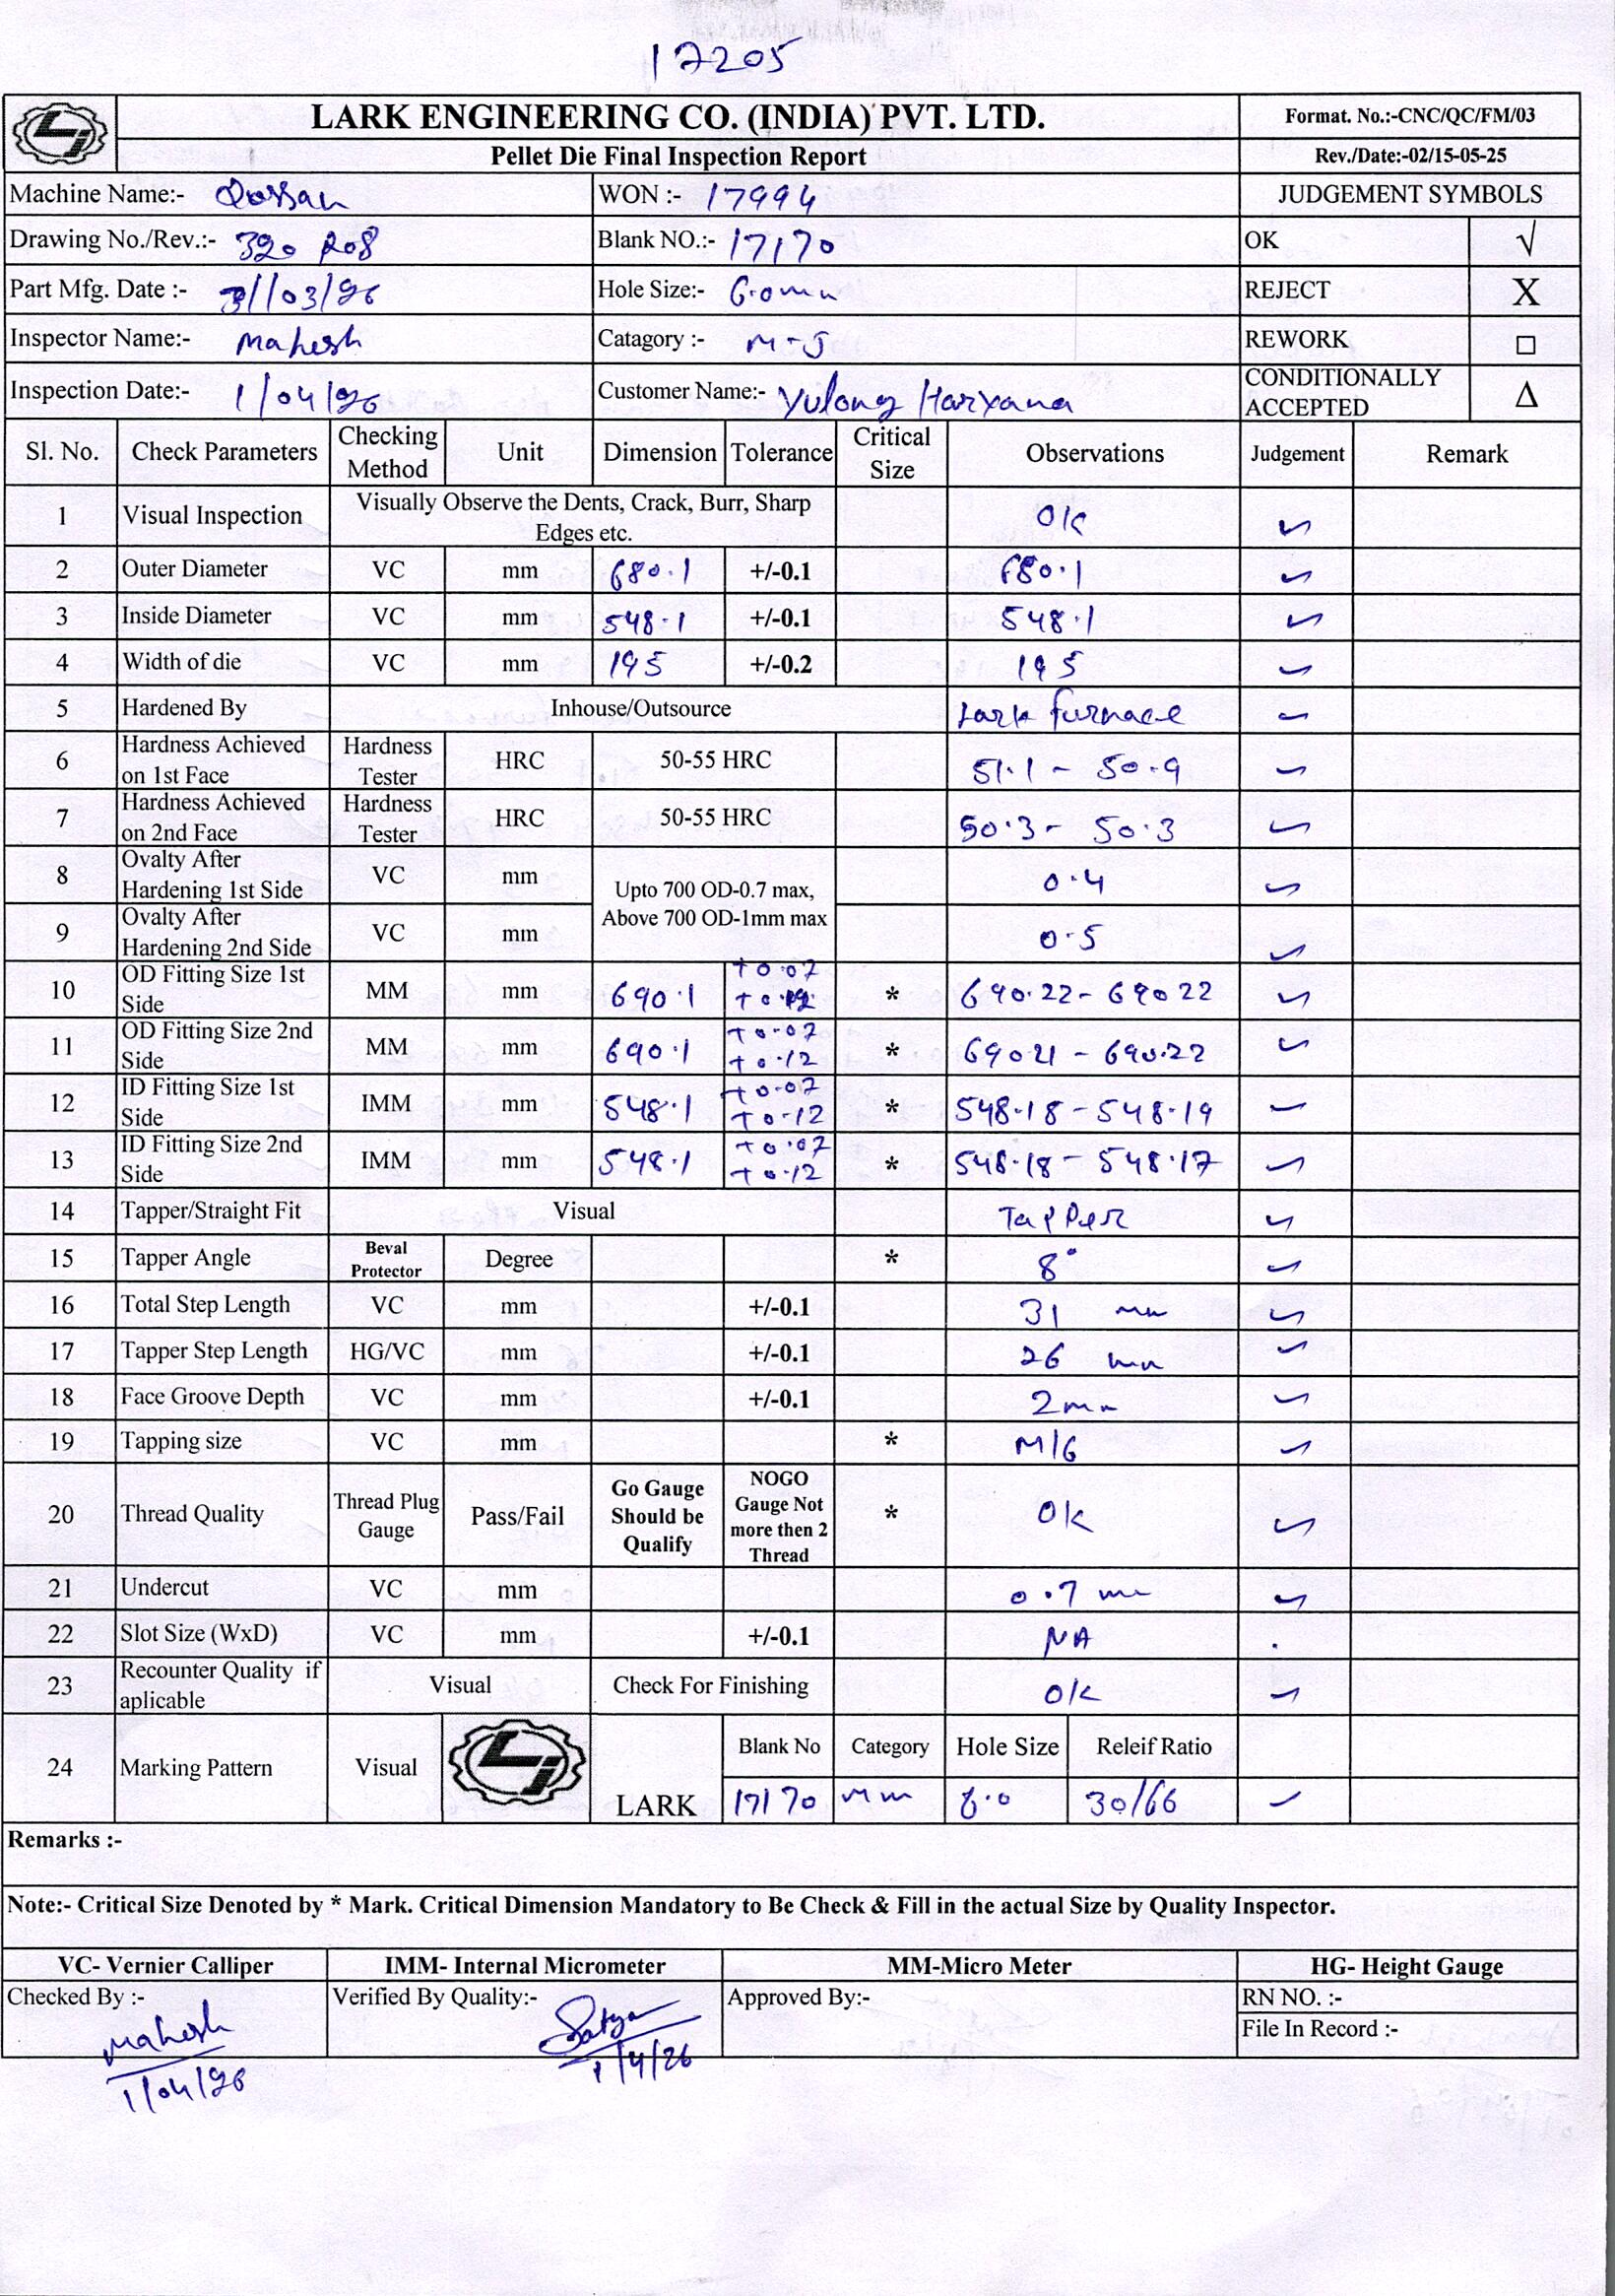 17205
LARK ENGINEERING CO. (INDIA) PVT. LTD.
Format. No.:-CNC/QC/FM/03
Pellet Die Final Inspection Report
Rev./Date:-02/15-05-25
Machine Name:-
WON :- 17994
JUDGEMENT SYMBOLS
Drawing No./Rev.:- 320 R08
Blank NO.:- 17170
OK √
Part Mfg. Date :- 31/03/26
Hole Size:- 6.0mm
REJECT X
Inspector Name:- Mahesh
Catagory :-
REWORK □
Inspection Date:- 1/04/26
Customer Name:- Yulong Haryana
CONDITIONALLY ACCEPTED Δ
Sl. No. Check Parameters Checking Method Unit Dimension Tolerance Critical Size Observations Judgement Remark
1 Visual Inspection Visually Observe the Dents, Crack, Burr, Sharp Edges etc. OK ✓
2 Outer Diameter VC mm 680.1 +/-0.1 680.1 ✓
3 Inside Diameter VC mm 548.1 +/-0.1 548.1 ✓
4 Width of die VC mm 195 +/-0.2 195 ✓
5 Hardened By Inhouse/Outsource Lark furnace ✓
6 Hardness Achieved on 1st Face Hardness Tester HRC 50-55 HRC 51.1 - 50.9 ✓
7 Hardness Achieved on 2nd Face Hardness Tester HRC 50-55 HRC 50.3 - 50.3 ✓
8 Ovalty After Hardening 1st Side VC mm Upto 700 OD-0.7 max, Above 700 OD-1mm max 0.4 ✓
9 Ovalty After Hardening 2nd Side VC mm 0.5 ✓
10 OD Fitting Size 1st Side MM mm 690.1 +0.07 +0.12 * 690.22 - 690 22 ✓
11 OD Fitting Size 2nd Side MM mm 690.1 +0.07 +0.12 * 69021 - 690.22 ✓
12 ID Fitting Size 1st Side IMM mm 548.1 +0.07 +0.12 * 548.18 - 548.19 ✓
13 ID Fitting Size 2nd Side IMM mm 548.1 +0.07 +0.12 * 548.18 - 548.17 ✓
14 Tapper/Straight Fit Visual Tapper ✓
15 Tapper Angle Beval Protector Degree * 8° ✓
16 Total Step Length VC mm +/-0.1 31 mm ✓
17 Tapper Step Length HG/VC mm +/-0.1 26 mm ✓
18 Face Groove Depth VC mm +/-0.1 2mm ✓
19 Tapping size VC mm * M16 ✓
20 Thread Quality Thread Plug Gauge Pass/Fail Go Gauge Should be Qualify NOGO Gauge Not more then 2 Thread * OK ✓
21 Undercut VC mm 0.7 mm ✓
22 Slot Size (WxD) VC mm +/-0.1 NA
23 Recounter Quality if aplicable Visual Check For Finishing OK ✓
24 Marking Pattern Visual LARK Blank No Category Hole Size Releif Ratio
17170 mm 6.0 30/66 ✓
Remarks :-
Note:- Critical Size Denoted by * Mark. Critical Dimension Mandatory to Be Check & Fill in the actual Size by Quality Inspector.
VC- Vernier Calliper IMM- Internal Micrometer MM-Micro Meter HG- Height Gauge
Checked By :- Mahesh 1/04/26
Verified By Quality:- Satya 1/4/26
Approved By:-
RN NO. :-
File In Record :-